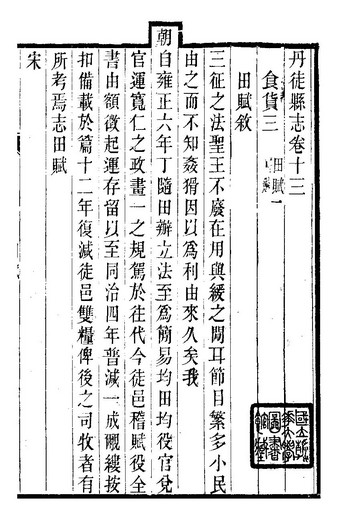 丹徒縣志卷十三
食貨三 田賦一
田賦敘
三征之法聖王不廢在用與緩之間耳節目繁多小民
由之而不知姦猾因以爲利由來久矣我
朝自雍正六年丁隨田辦立法至爲簡易均田均役官兌
官運寬仁之政畫一之規駕於往代今徒邑稽賦役全
書由額徵起運存留以至同治四年普減一成覼縷按
扣備載於篇十二年復減徒邑雙糧俾後之司牧者有
所考焉志田賦
宋